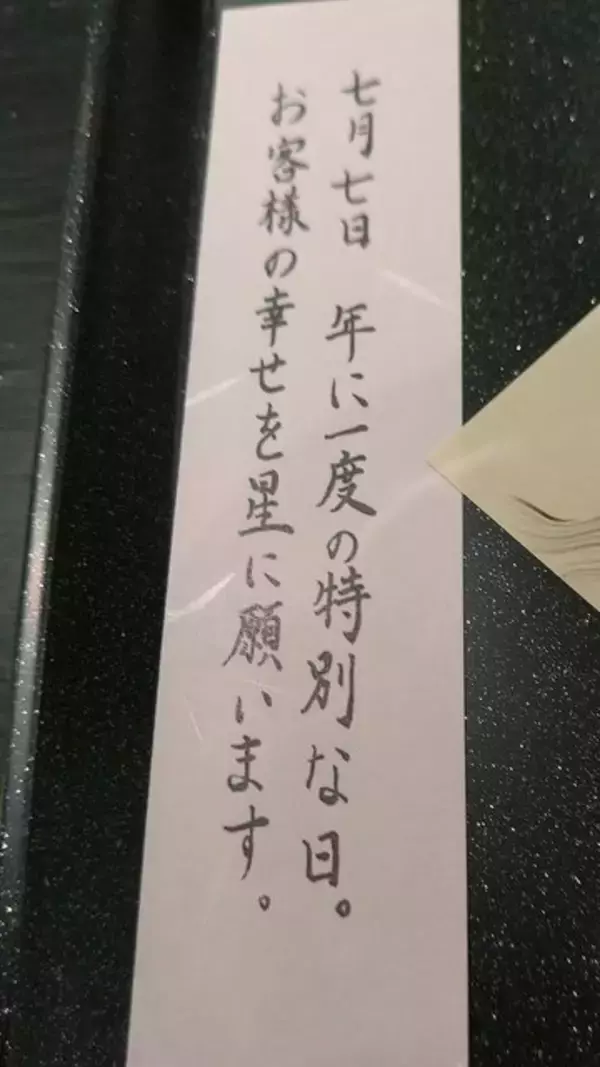 七月七日　年に一度の特別な日。
お客様の幸せを星に願います。